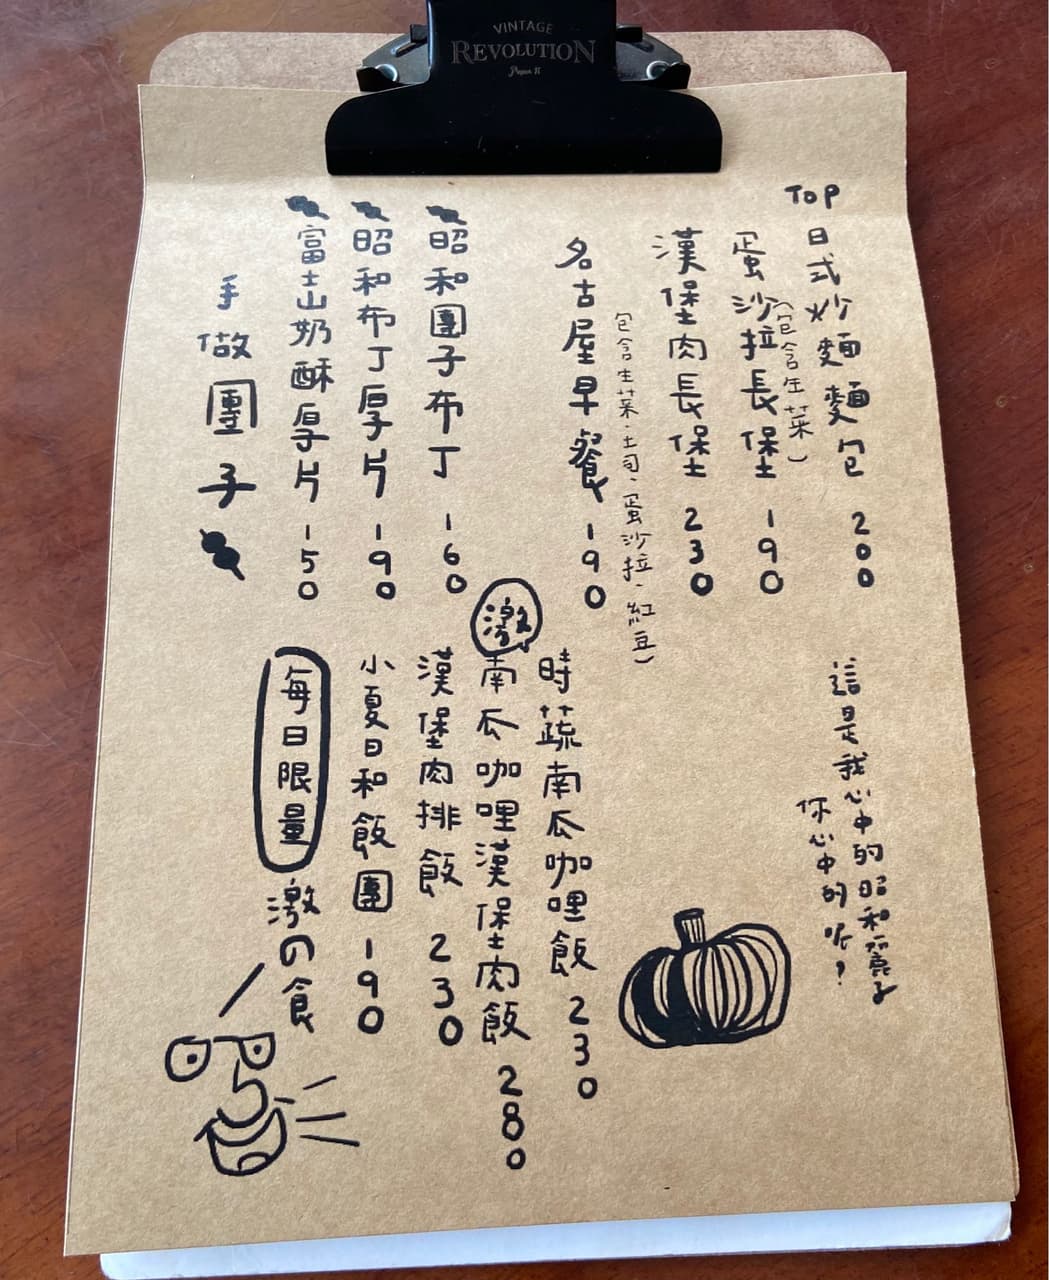 VINTAGE
REVOLUTION
Paper II
TOP
日式炒麵麵包 200
(包含生菜)
蛋沙拉長堡 190
漢堡肉長堡 230
(包含生菜、土司、蛋沙拉、紅豆)
名古屋早餐 190
昭和團子布丁 160
昭和布丁厚片 190
富士山奶酥厚片 150
手做團子
這是我心中的昭和麗子
你心中的呢?
時蔬南瓜咖哩飯 230
激
南瓜咖哩漢堡肉飯 280
漢堡肉排飯 230
小夏日和飯團 190
每日限量
激の食